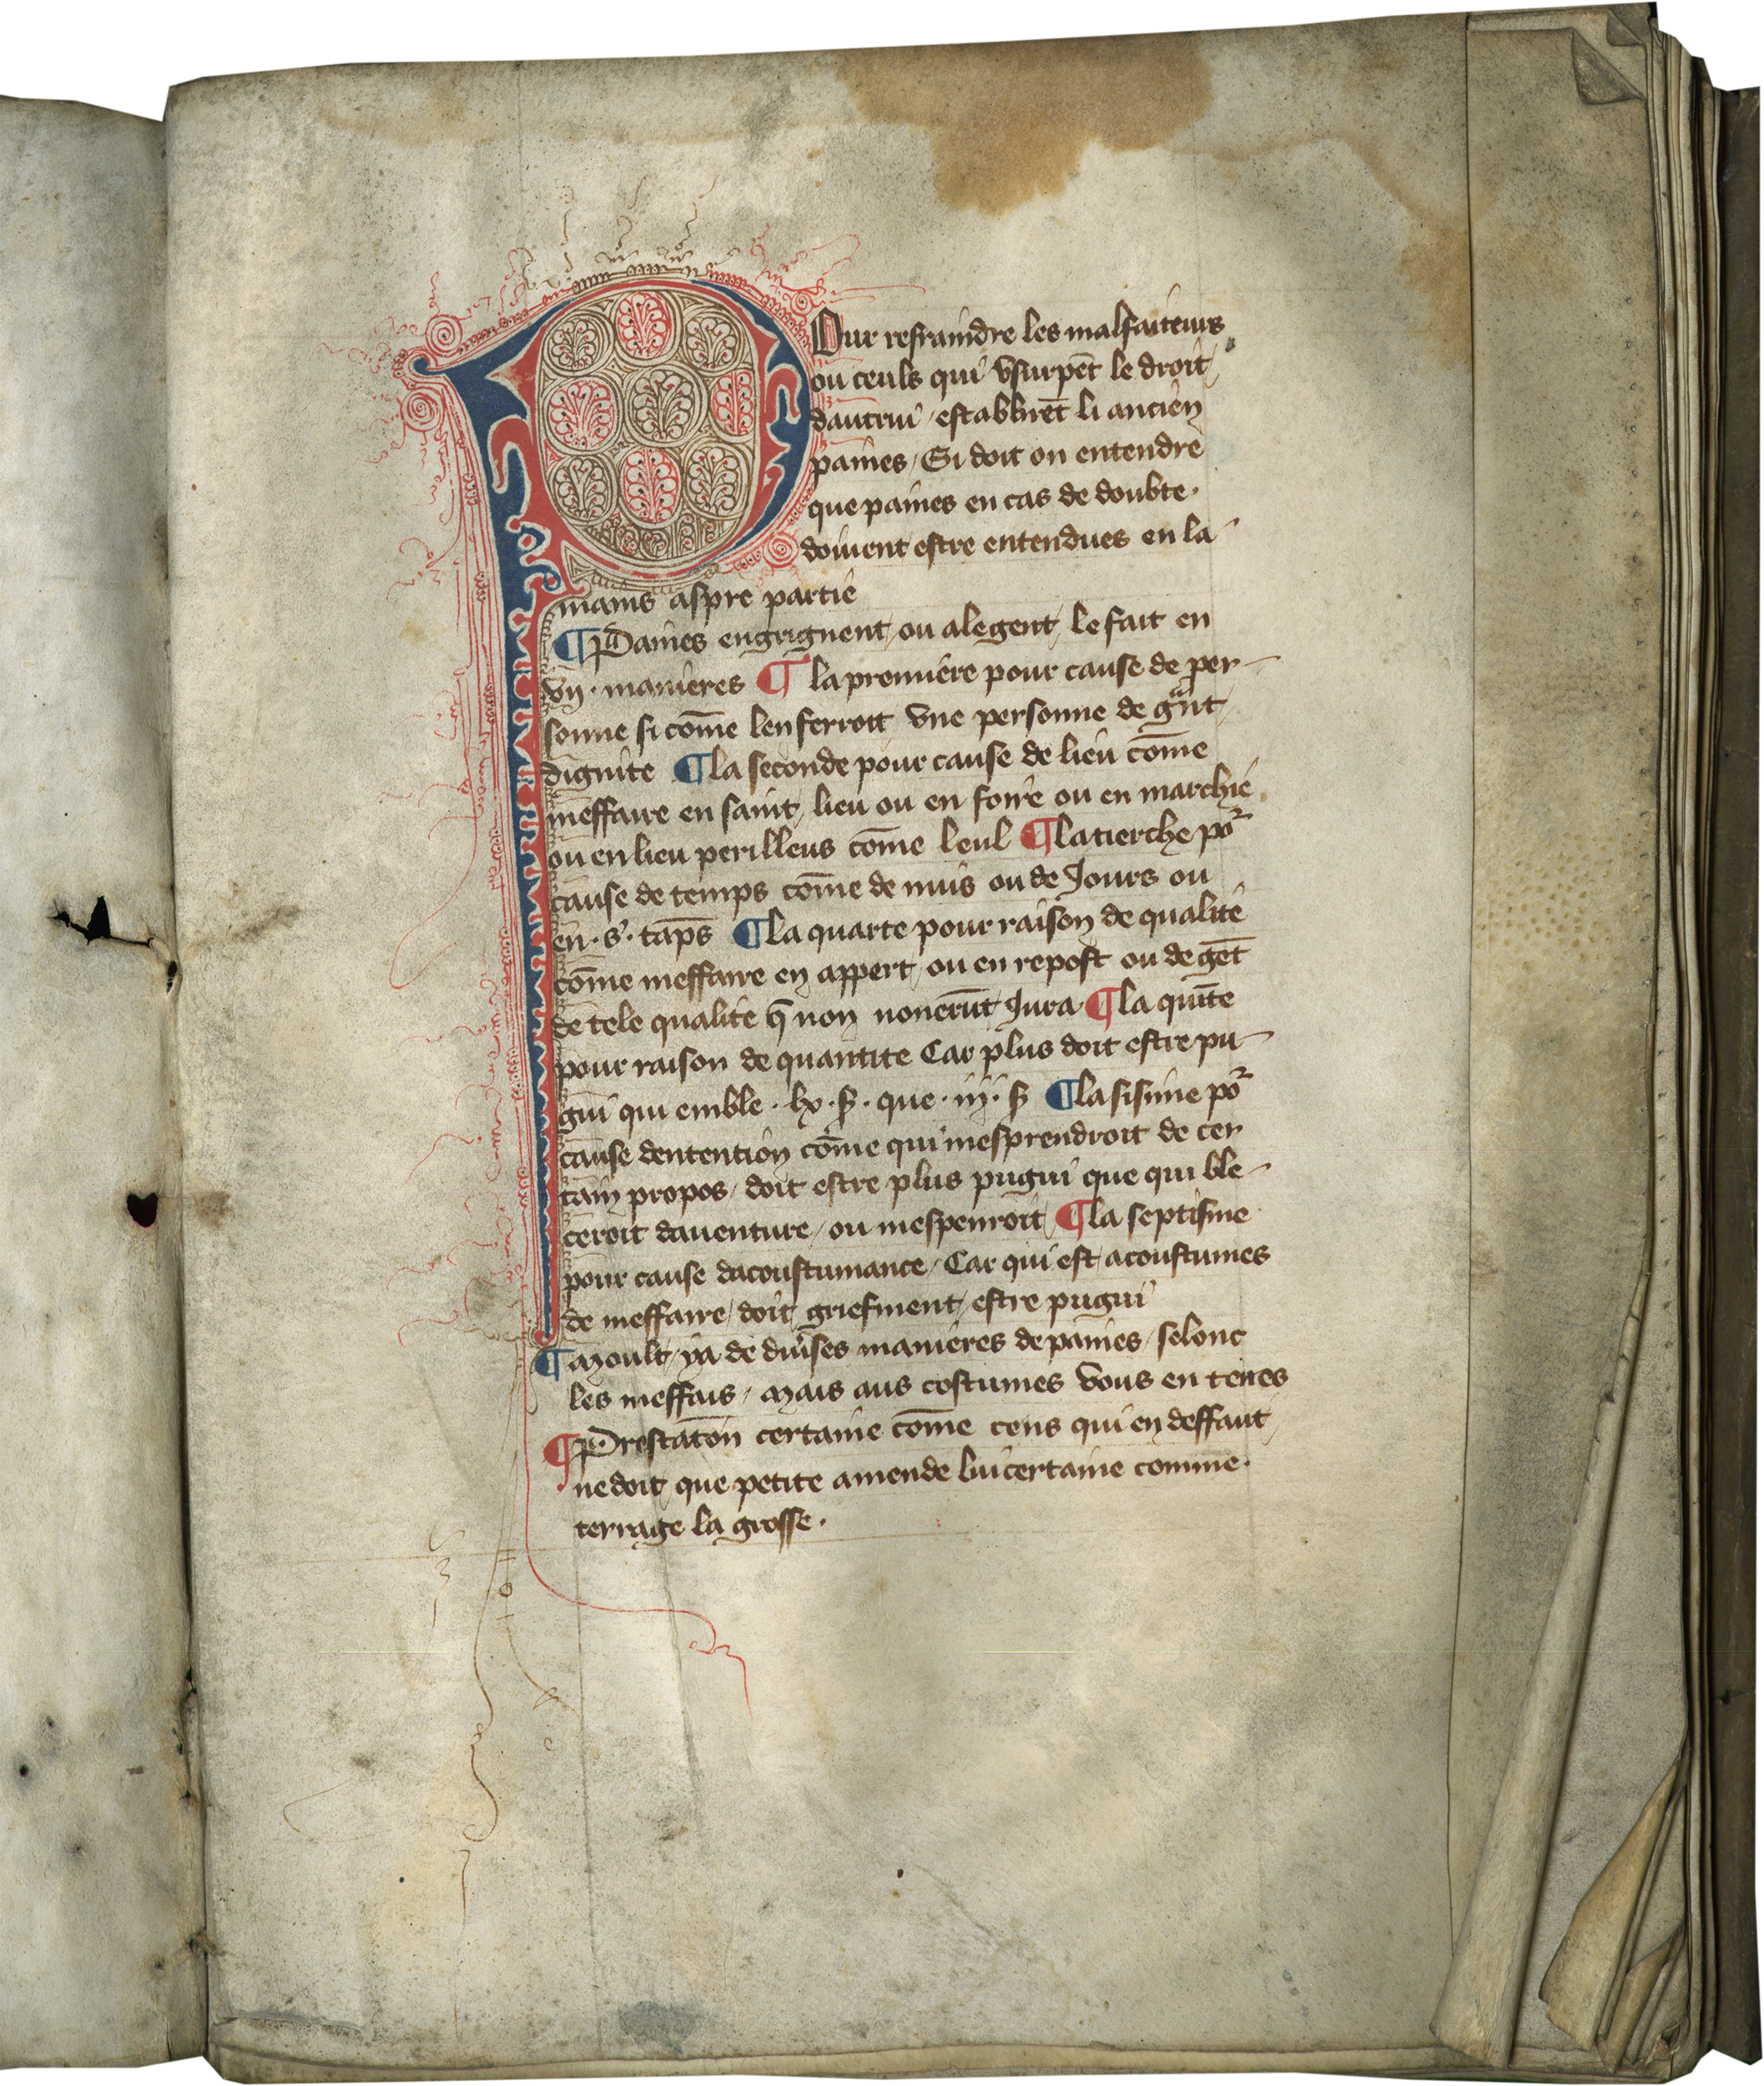 Pour refraindre les malfaiteurs
ou ceuls qui vsurpēt le droit
dautrui / establirēt li ancien
paines / Si doit on entendre
que paines en cas de doubte·
doiuent estre entendues en la
mains aspre partie
¶ Paines engrignent / ou alegent / le fait en
vij · manieres ¶ la premiere pour cause de per-
sonne si cōme len ferroit vne personne de gᵃnt
dignite ¶ la seconde pour cause de lieu cōme
meffaire en saint / lieu ou en foire ou en marchie
ou en lieu perilleus cōme leul ¶ la tierche poʳ
cause de temps cōme de nuis ou de Jours ou
en · s · tāps ¶ la quarte pour raison de qualite
cōme meffaire en appert / ou en repost ou de gēt
de tele qualite q̄ non nouerūt Jura ¶ la quīte
pour raison de quantite Car plus doit estre pu-
gni qui emble · lx · s̄ · que · iij · s̄ ¶ la sisime poʳ
cause dentention cōme qui mesprendroit de cer
tain propos / doit estre plus pugni que qui ble-
ceroit dauenture / ou mespenroit / ¶ la septisme
pour cause dacoustumance / Car qui est acoustumes
de meffaire / doit griefment / estre pugni
¶ Moult / ya de diu'ses manieres de paines / selonc
les meffais / Mais aus costumes vous en tenes
¶ Prestatōn certaine cōme cens qui en deffaut /
ne doit / que petite amende luicertaine comme·
terrage la grosse ·